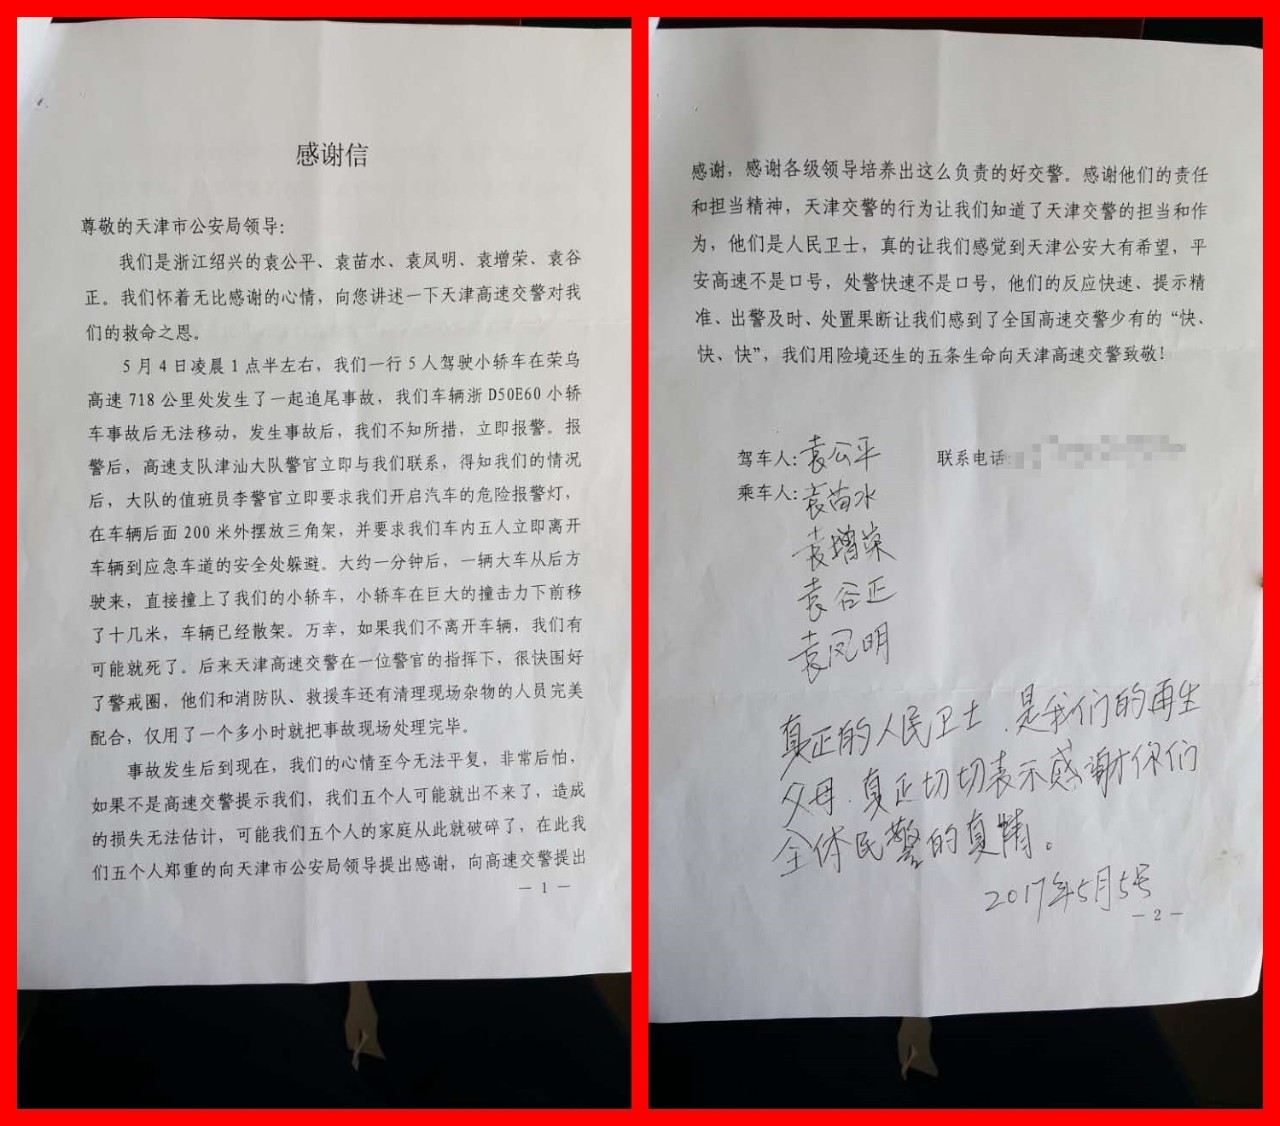 感谢信
尊敬的天津市公安局领导：
我们是浙江绍兴的袁公平、袁苗水、袁凤明、袁增荣、袁谷
正。我们怀着无比感谢的心情，向您讲述一下天津高速交警对我
们的救命之恩。
5月4日凌晨1点半左右，我们一行5人驾驶小轿车在荣乌
高速718公里处发生了一起追尾事故，我们车辆浙D50E60小轿
车事故后无法移动，发生事故后，我们不知所措，立即报警。报
警后，高速支队津汕大队警官立即与我们联系，得知我们的情况
后，大队的值班员李警官立即要求我们开启汽车的危险报警灯，
在车辆后面200米外摆放三角架，并要求我们车内五人立即离开
车辆到应急车道的安全处躲避。大约一分钟后，一辆大车从后方
驶来，直接撞上了我们的小轿车，小轿车在巨大的撞击力下前移
了十几米，车辆已经散架。万幸，如果我们不离开车辆，我们有
可能就死了。后来天津高速交警在一位警官的指挥下，很快围好
了警戒圈，他们和消防队、救援车还有清理现场杂物的人员完美
配合，仅用了一个多小时就把事故现场处理完毕。
事故发生后到现在，我们的心情至今无法平复，非常后怕，
如果不是高速交警提示我们，我们五个人可能就出不来了，造成
的损失无法估计，可能我们五个人的家庭从此就破碎了，在此我
们五个人郑重的向天津市公安局领导提出感谢，向高速交警提出
— 1 —
感谢，感谢各级领导培养出这么负责的好交警。感谢他们的责任
和担当精神，天津交警的行为让我们知道了天津交警的担当和作
为，他们是人民卫士，真的让我们感觉到天津公安大有希望，平
安高速不是口号，处警快速不是口号，他们的反应快速、提示精
准、出警及时、处置果断让我们感到了全国高速交警少有的“快、
快、快”，我们用险境还生的五条生命向天津高速交警致敬！
驾车人：袁公平 联系电话：
乘车人：袁苗水
袁增荣
袁谷正
袁凤明
真正的人民卫士，是我们的再生
父母，真正切切表示感谢你们
全体民警的真情。
2017年5月5号
— 2 —